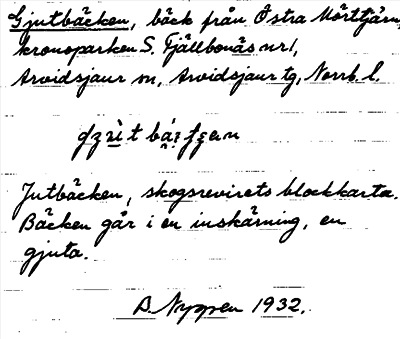 Gjutbäcken, bäck från Östra Mörttjärn,
kronoparken S. Fjällbonäs nr 1,
Arvidsjaur sn, Arvidsjaur tg, Norrb. l.
Jutbäcken, skogsrevirets blockkarta.
Bäcken går i en inskärning, en
gjuta.
B. Nygren 1932.